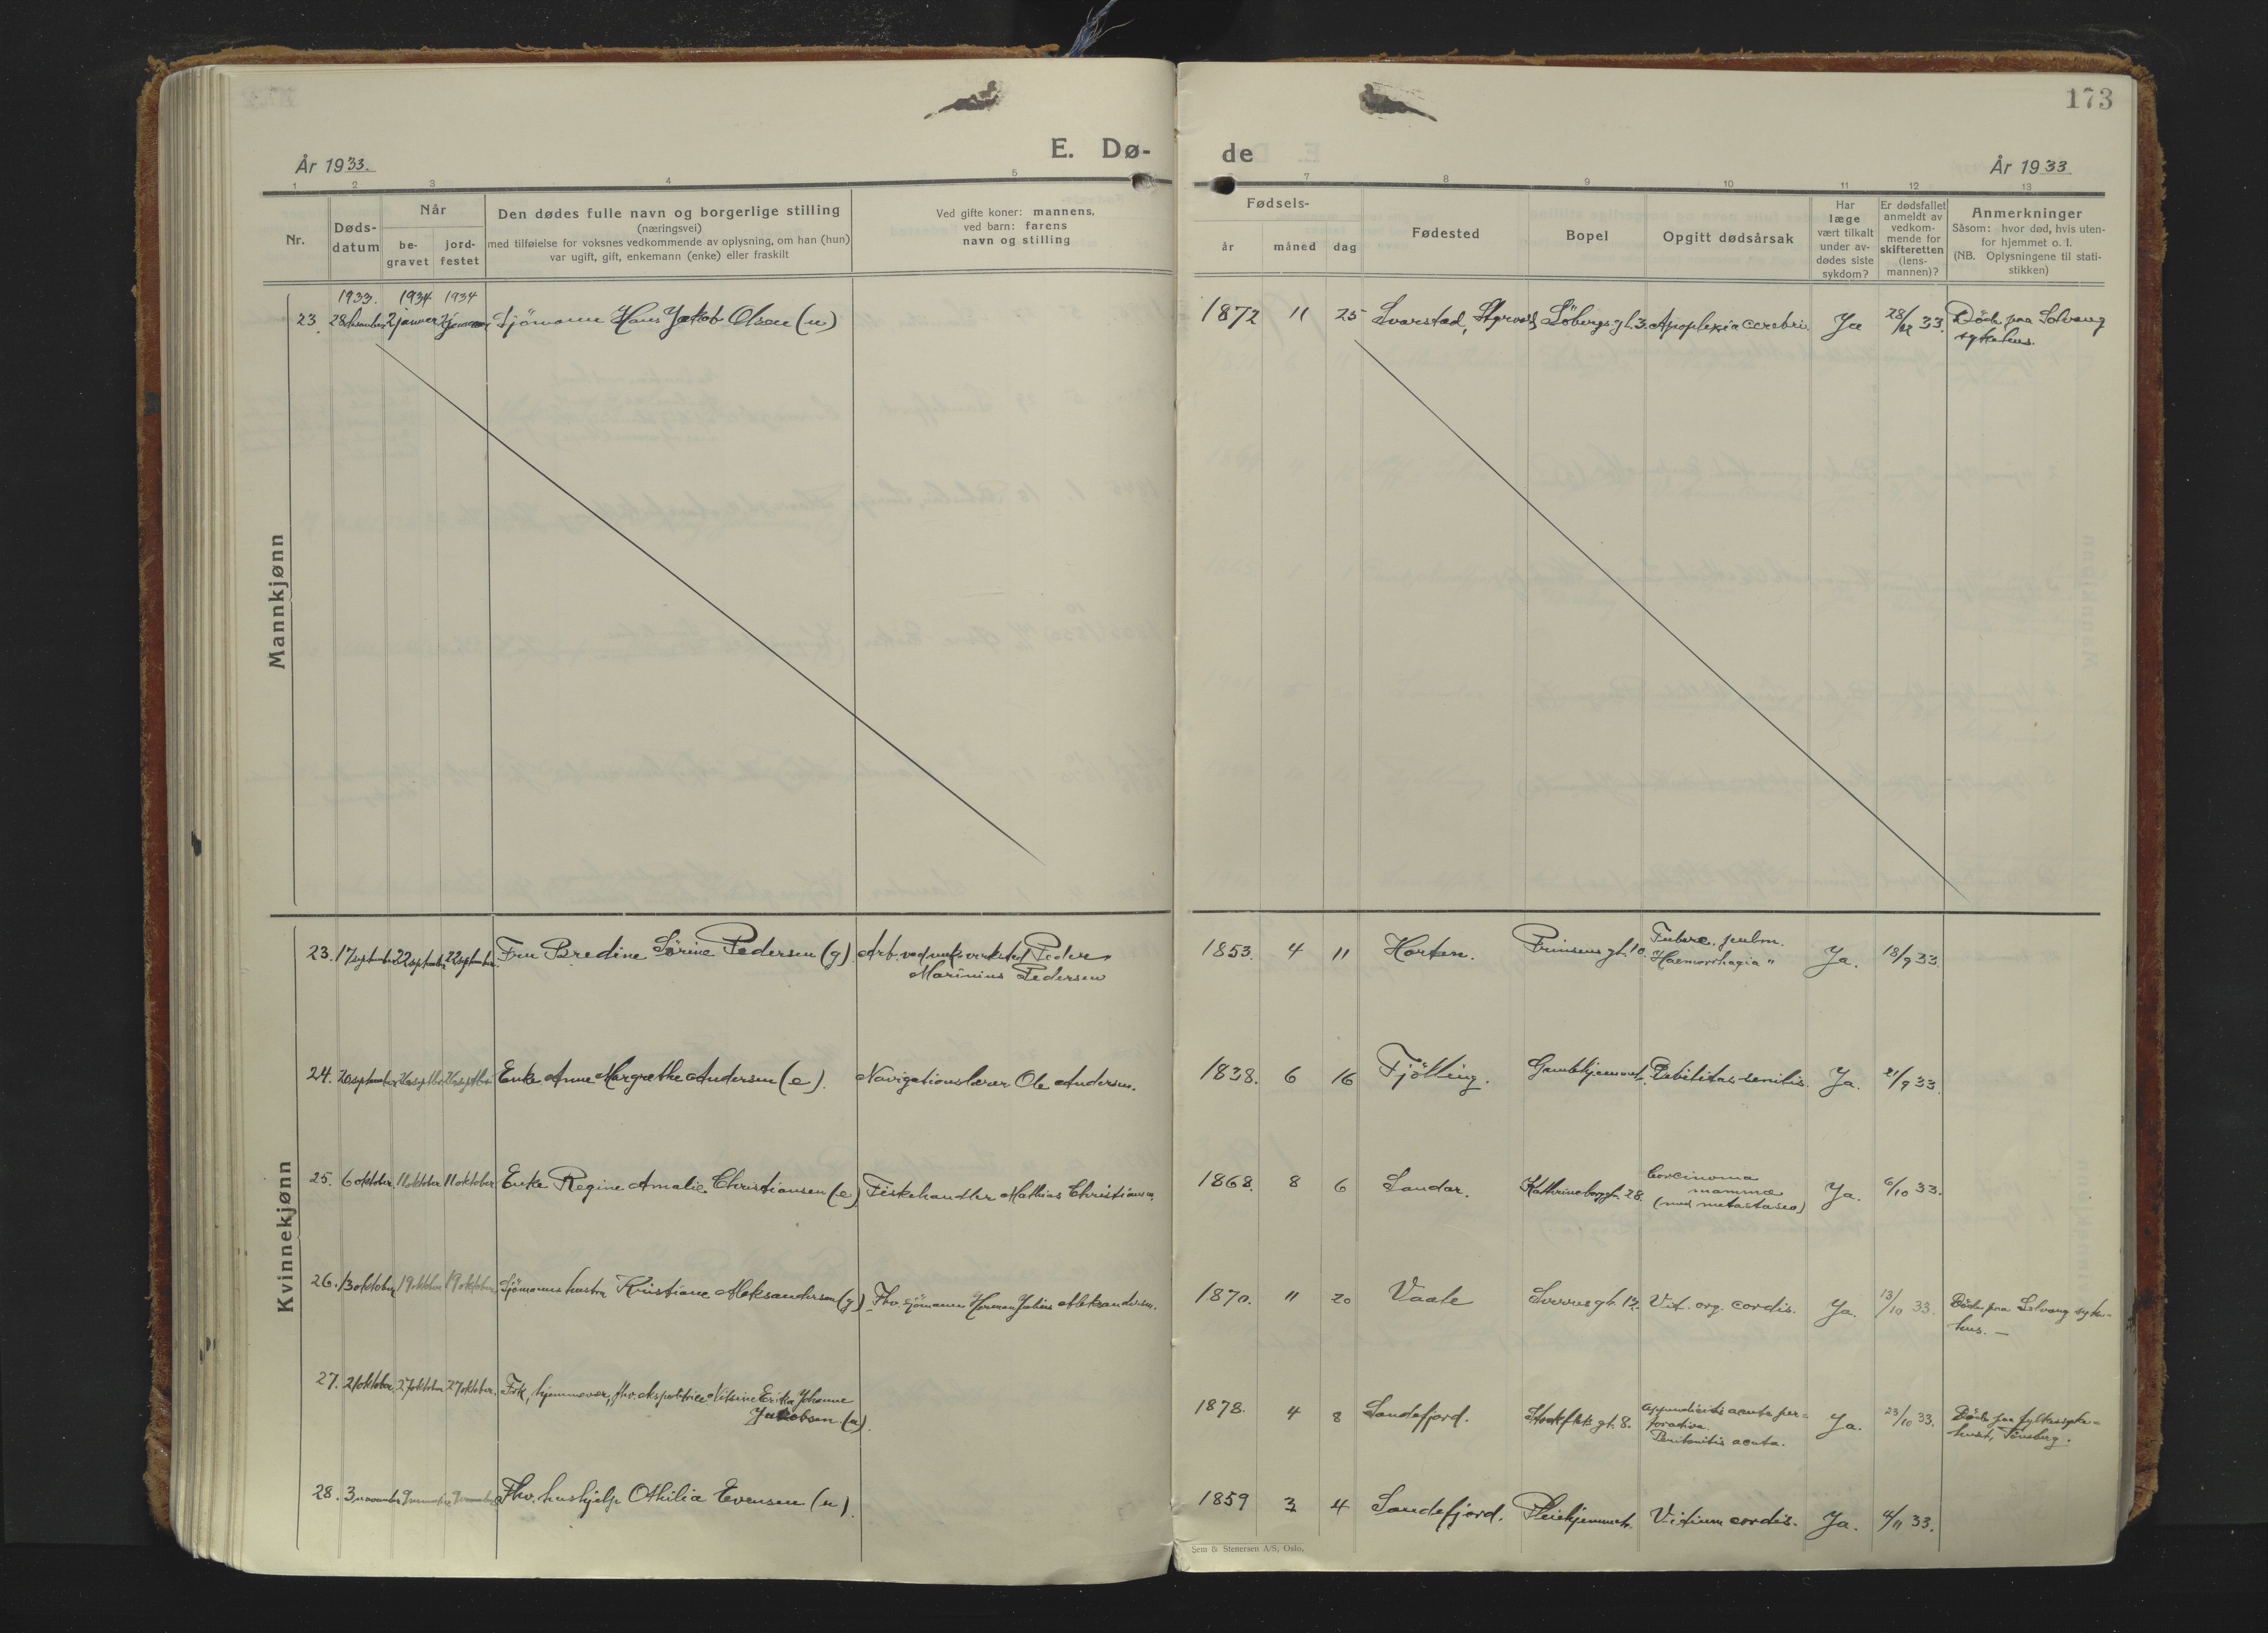 173
E. Dø-
de
År 1933.
År 1933
1 2 3 4 5
6 7 8 9 10 11 12 13
Nr.
Døds-
datum
Når
be-
gravet
jord-
festet
Den dødes fulle navn og borgerlige stilling
(næringsvei)
med tilføielse for voksnes vedkommende av oplysning, om han (hun)
var ugift, gift, enkemann (enke) eller fraskilt
Ved gifte koner: mannens,
ved barn: farens
navn og stilling
Fødsels-
år måned dag
Fødested
Bopel
Opgitt dødsårsak
Har
læge
vært tilkalt
under av-
dødes siste
sykdom?
Er dødsfallet
anmeldt av
vedkom-
mende for
skifteretten
(lens-
mannen)?
Anmerkninger
Såsom: hvor død, hvis uten-
for hjemmet o. l.
(NB. Oplysningene til stati-
stikken)
Mannkjønn
1933. 1934 1934
23. 28 desember 2 januar 2 januar Sjömann Hans Jakob Olsen (u)
1872 11 25 Svarstad, Söbergs gt. 3. Apoplexia cerebri. Ja 28/12 33. Död paa Solvang
sykehus.
Kvinnekjønn
23. 17 september 22 september 22 september Fru Bredine Sörine Pedersen (g) Arb. ved mek. verksted Peder
Marinius Pedersen
1853. 4 11 Horten. Prinsens gt. 10. Tuberc. pulm.
Haemorrhagia " Ja. 18/9 33.
24. 20 september 26 septbr 26 septbr Enke Anne Margrethe Andersen (e). Navigationslærer Ole Andersen.
1838. 6 16 Fjölling. Gamlehjemmet. Debilitas senilis. Ja. 21/9 33.
25. 6 oktober 11 oktober 11 oktober Enke Regine Amalie Christiansen (e) Fiskehandler Mathias Christiansen.
1868. 8 6 Sandar. Kathrineborggt. 28. Carcinoma
mammæ
(med metastaser) Ja. 6/10 33.
26. 13 oktober 19 oktober 19 oktober Sjömanns hustru Kristiane Aleksandersen (g) Fhv. sjömann Herman Julius Aleksandersen.
1870. 11 20 Vaale Sverres gt. 12. Vit. org. cordis. Ja. 13/10 33. Död paa Solvang syke-
hus. —
27. 21 oktober. 27 oktober 27 oktober. Frk, hjemmevær., fhv. ekspeditrice Erika Johanne
Jakobsen (u).
1878. 4 8 Sandefjord. gt. 8. Appendicitis acuta per-
forativa.
Peritonitis acuta. Ja. 23/10 33. Död paa fylkessyke-
huset, Tönsberg.
28. 3 november 9 november 9 november Fhv. hushjelp Othilia Evensen (u).
1859 3 4 Sandefjord. Pleiehjemmet. Vitium cordis. Ja. 4/11 33.
Sem & Stenersen A/S, Oslo.